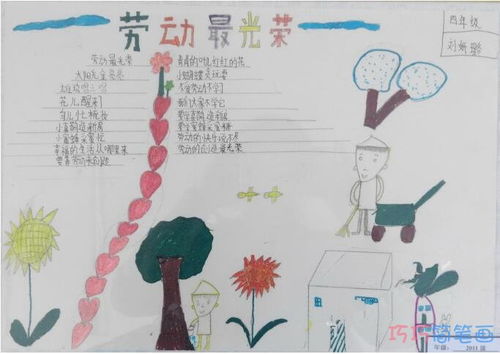 劳动最光荣
四年级
劳动最光荣
太阳光金亮亮
花儿醒来
小喜鹊造新房
小蜜蜂采蜜忙
幸福的生活从哪里来
要靠劳动来创造
青青的叶儿红红的花
小蝴蝶贪玩耍
不爱劳动不学习
我们大家不学它
要学喜鹊造新房
要学蜜蜂采蜜糖
劳动的快乐说不尽
劳动的创造最光荣
巧巧简笔画